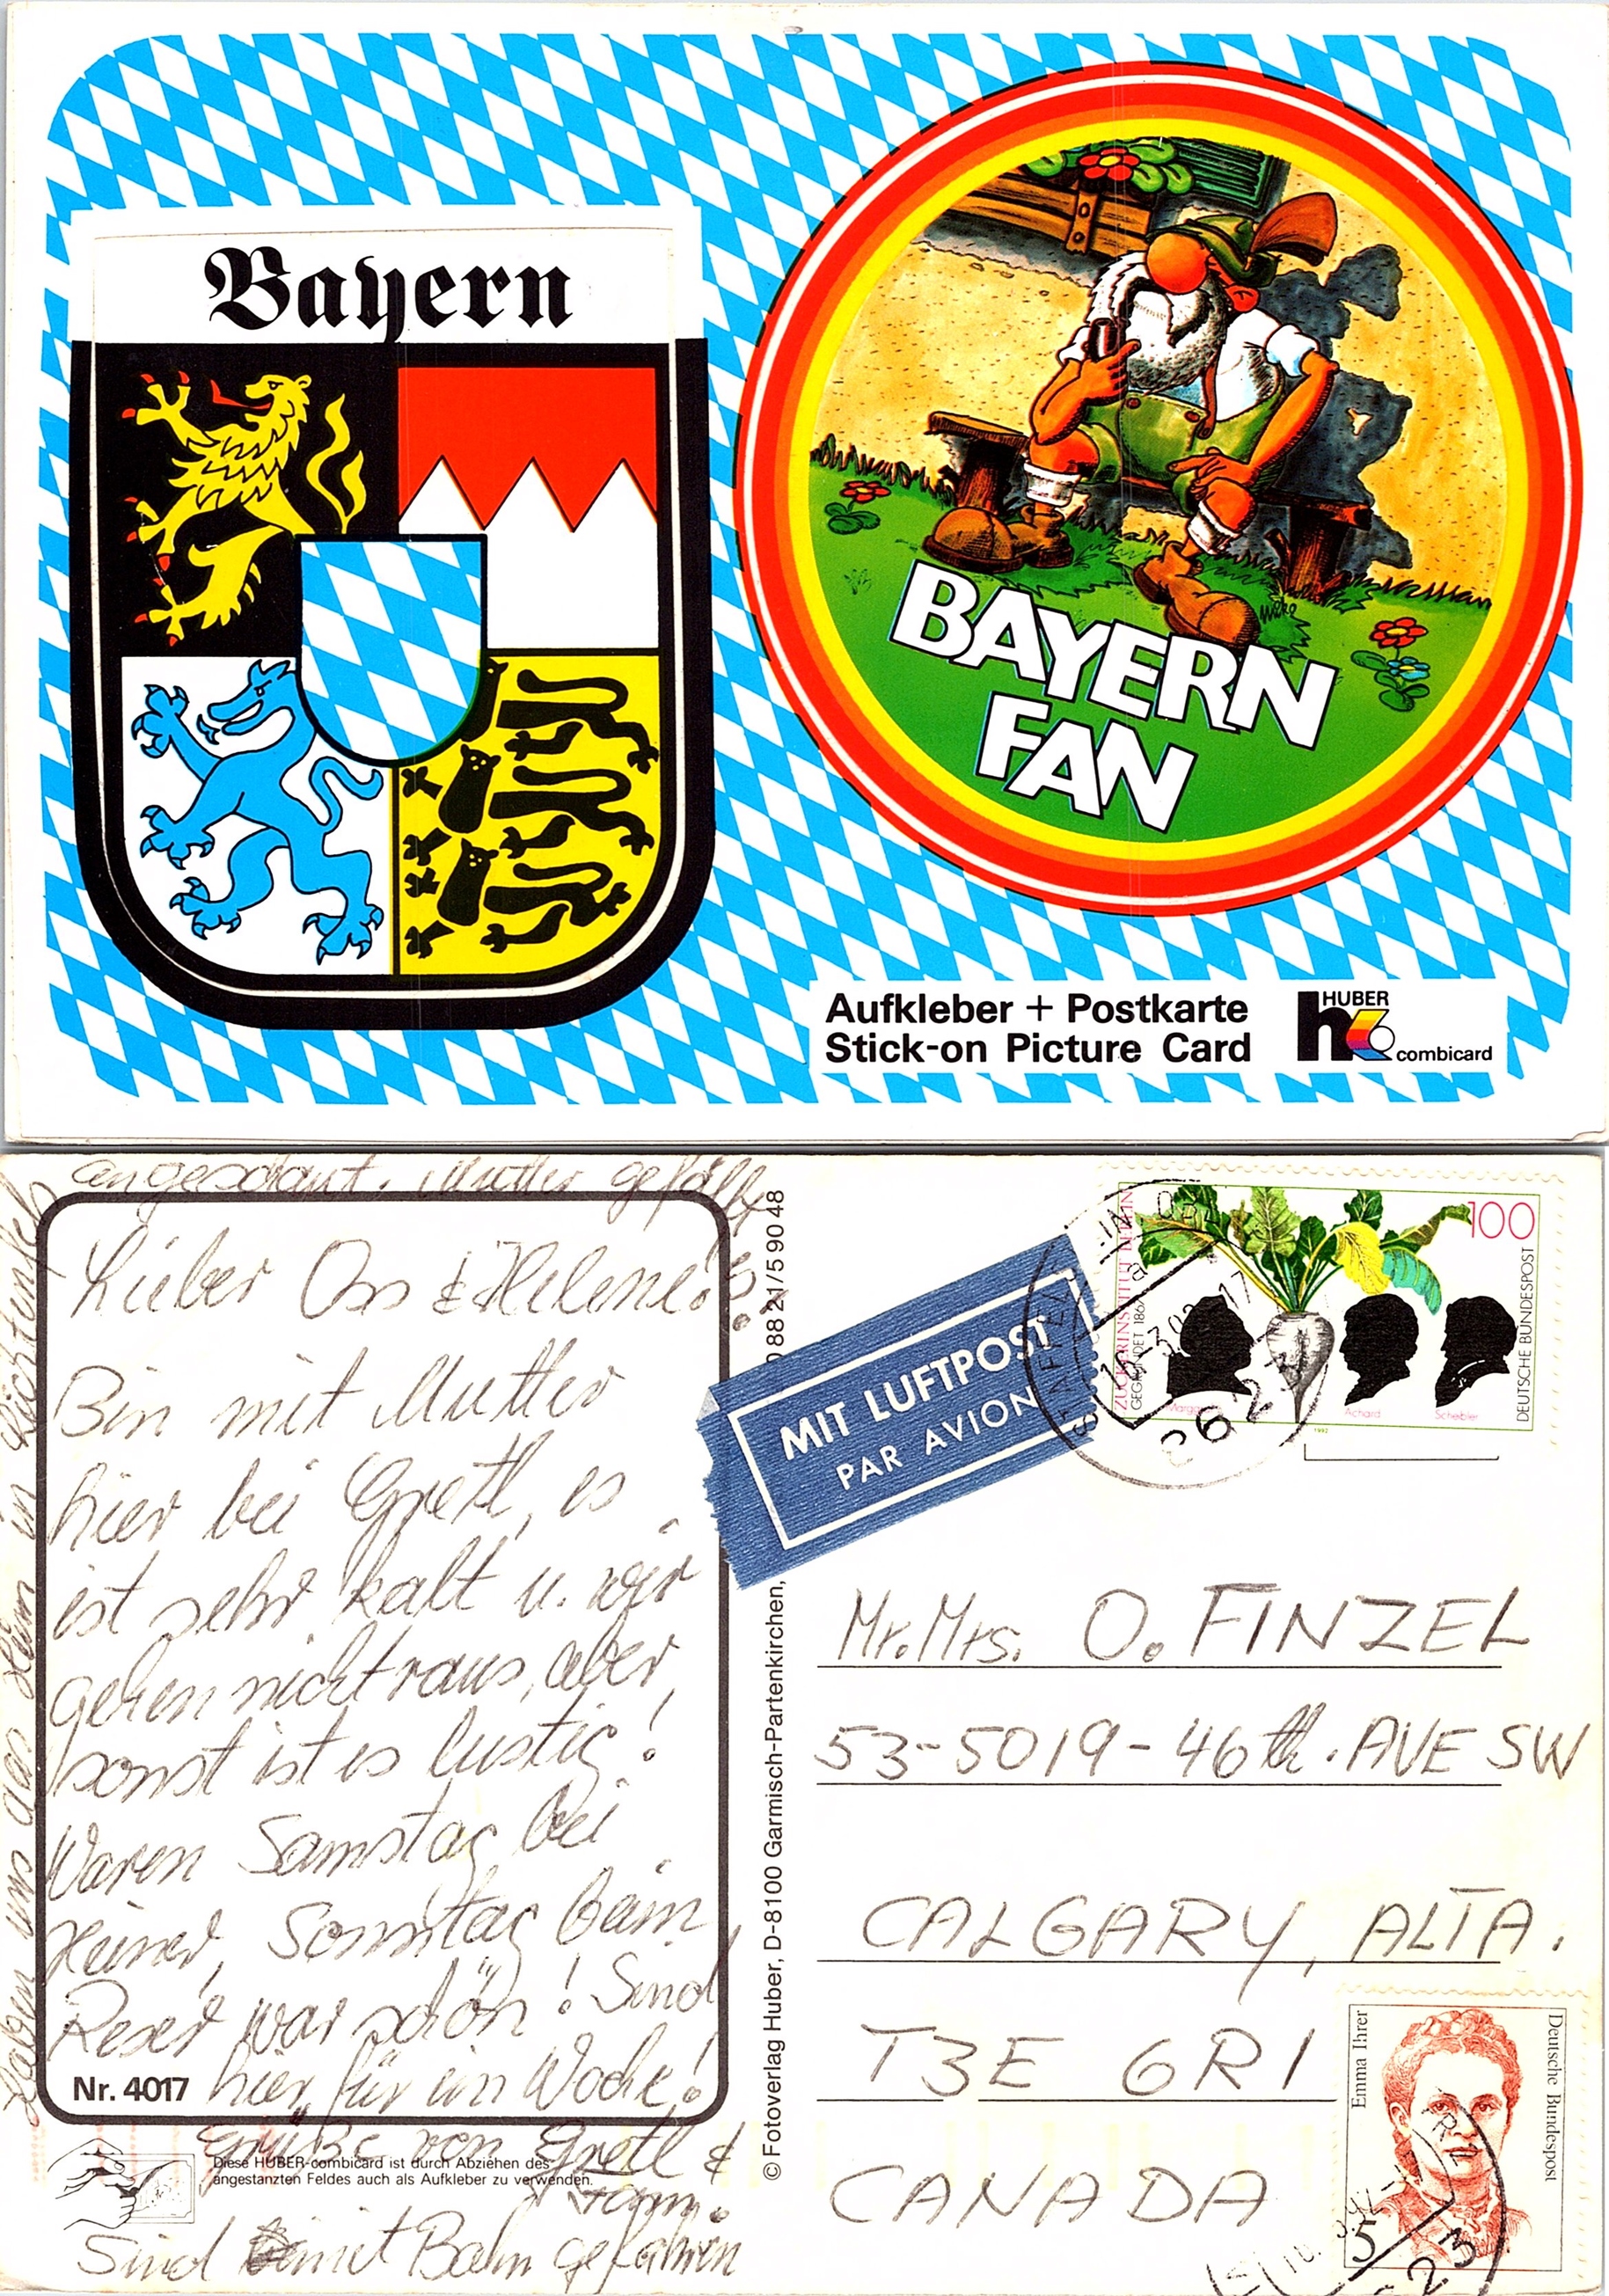 Bayern
BAYERN
FAN
Aufkleber + Postkarte
Stick-on Picture Card
HUBER
combicard
angeschaut. Mutter gefällt
Lieber Oss & Helene!
Bin mit Mutter
hier bei Gretl, es
ist sehr kalt u. wir
gehen nicht raus, aber
sonst ist es lustig!
Waren Samstag bei
Heiner, Sonntag beim
Reser, war schön! Sind
Nr. 4017 hier für ein Woche!
Grüße von Gretl &
Diese HUBER-combicard ist durch Abziehen des
angestanzten Feldes auch als Aufkleber zu verwenden.
Sind mit Bahn gefahren
Haben uns das in Lichtenfels
© Fotoverlag Huber, D-8100 Garmisch-Partenkirchen, 0 88 21/5 90 48
MIT LUFTPOST
PAR AVION
100
ZUCKERINSTITUT BERLIN
GEGRÜNDET 1867
DEUTSCHE BUNDESPOST
Achard
Scheibler
1992
8623
Mr. Mrs. O. FINZEL
53-5019-46th. AVE SW
CALGARY, ALTA.
T3E 6R1
CANADA
Emma Ihrer
Deutsche Bundespost
5